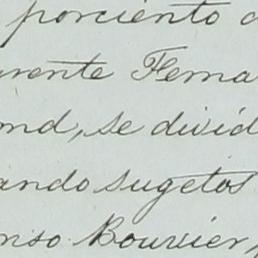 porciento
rente Ferna
md, se divid
ando sugetos
nso Bouvier,